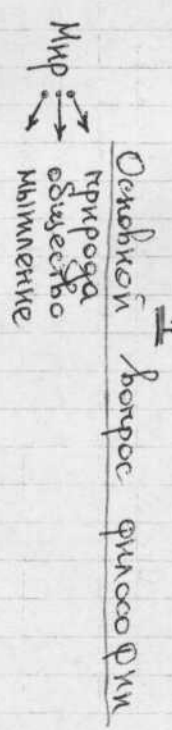 I
Основной вопрос философии
Мир
природа
общество
мышление